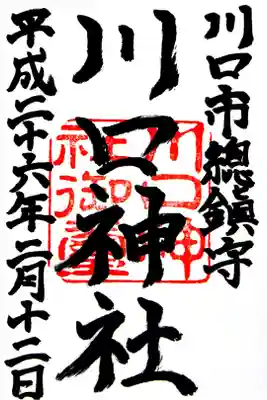 川口市總鎮守
川口神社
平成二十六年二月十二日
川口神
社御璽